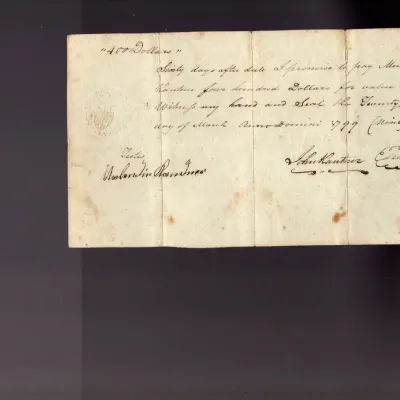 "400 Dollars"
Sixty days after date I promise to pay
four hundred Dollars for value
Witness my hand and Seal the Twenty
day of March Anno Domini 1799
Testes
John Kantner